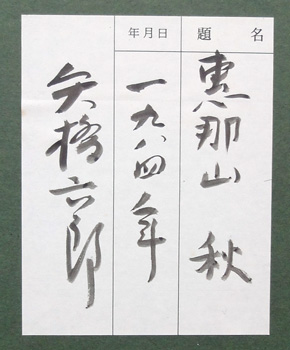 題名
恵那山 秋
年月日
一九八四年
矢橋六郎